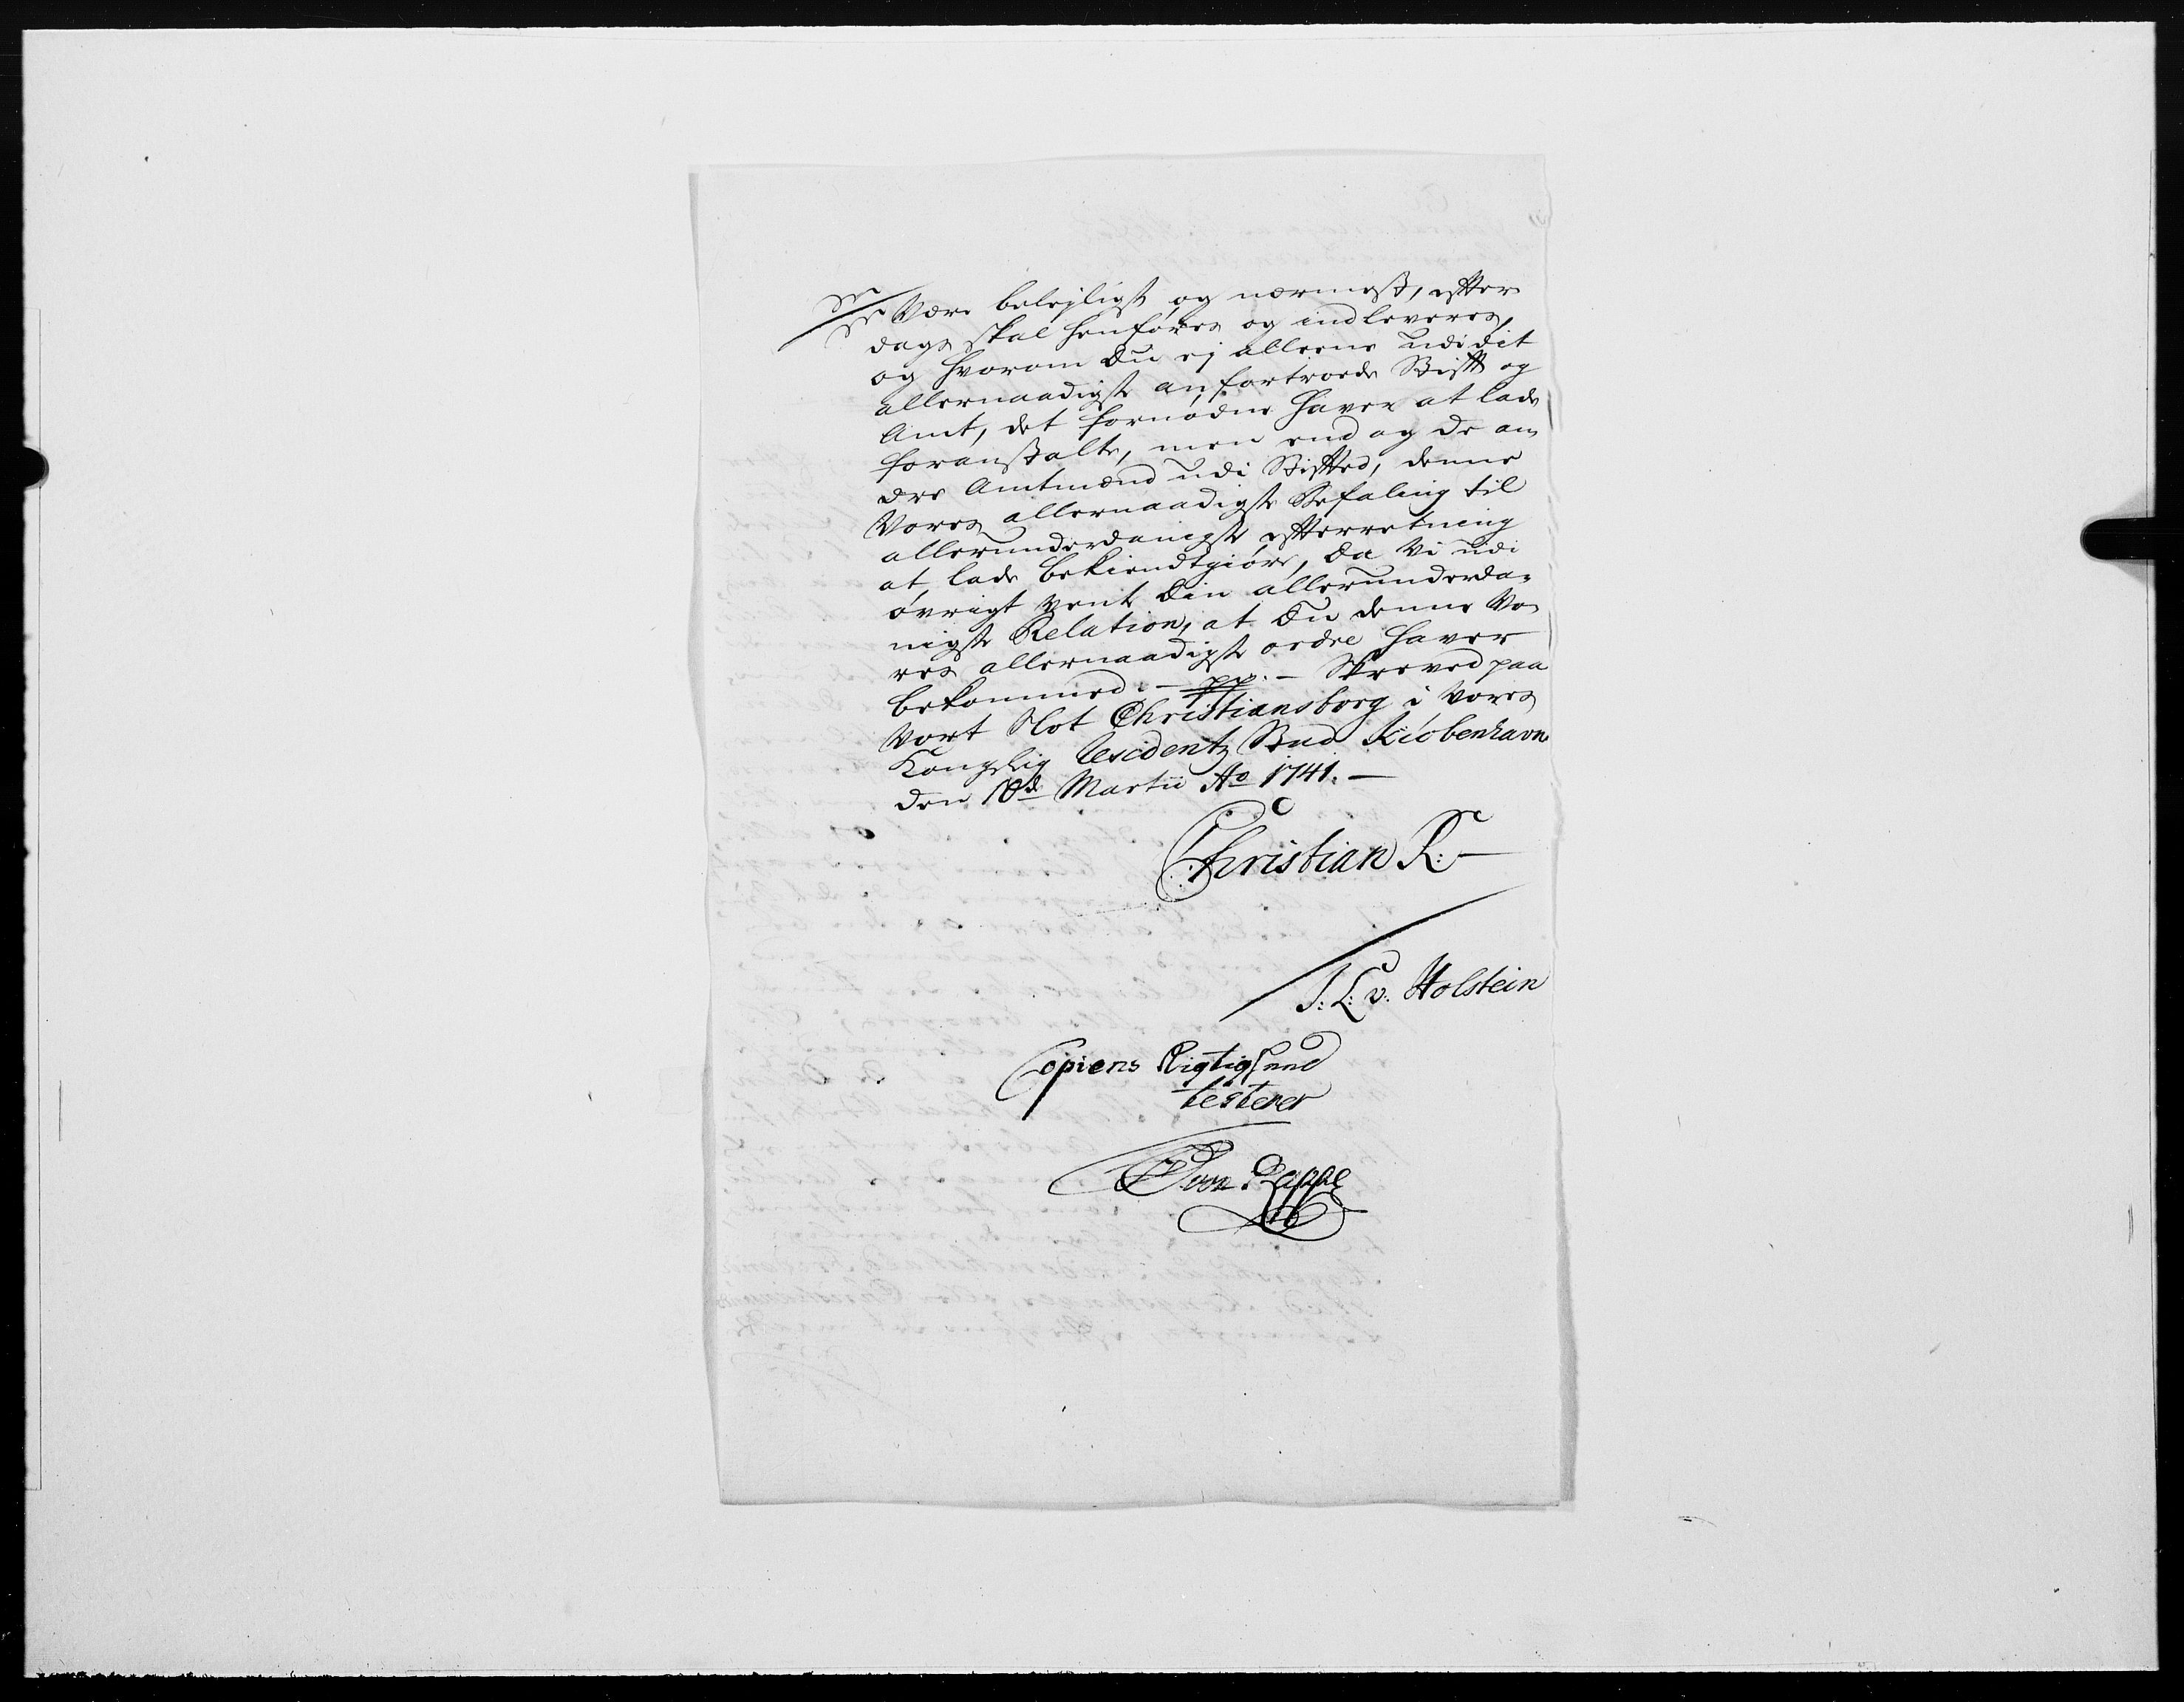 være belejligst og nærmest, efter
dags skal henføres og indleveres,
og hvorom Du ej alleene udi dit
allernaadigst anfortroede Stift og
Amt, det fornødne haver at lade
foranstalte, men end og de an
dre Amtmænd udi Stifted, denne
Vores allernaadigste Befaling til
allerunderdanigst efterretning
at lade bekiendtgiøre, da Vi udi
øvrigt vente Din allerunderda-
nigste Relation, at Du denne Vo
res allernaadigste ordre haver
bekommed. – pp. – Skreved paa
Vort Slot Christiansborg i Vores
Kongelig Residentz Stad Kiøbenhavn
den 10de Martii Ao 1741. –
Christian R: –
J: L: v: Holstein
Copiens Rigtighed
testerer
von Rappe